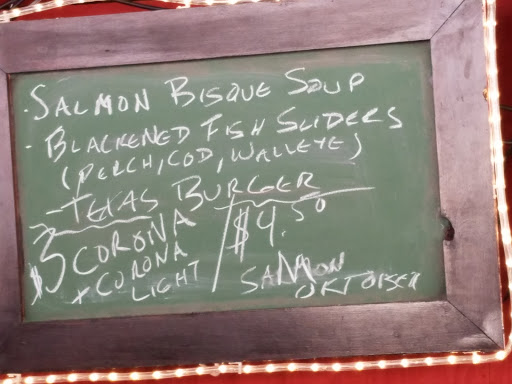 · SALMON BISQUE SOUP
- BLACKENED FISH SLIDERS
(PERCH, COD, WALLEYE)
- TEXAS BURGER
$3 CORONA
+ CORONA
LIGHT
$4.50
SAMMON
OKTOBER